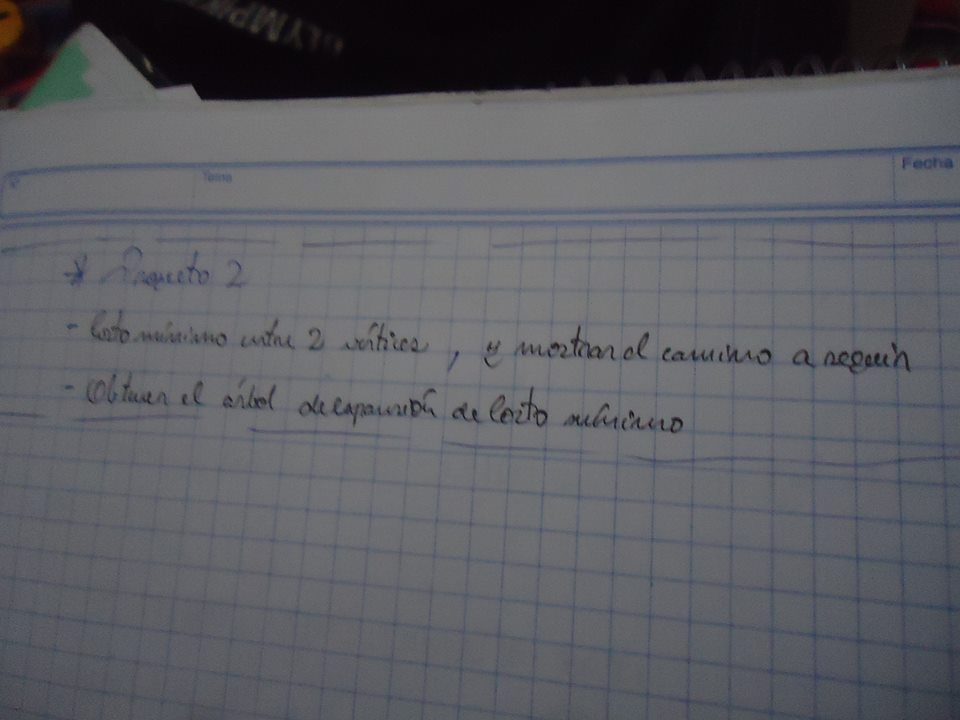 OLYMPIK
Tema
Fecha
* Proyecto 2
- Costo mínimo entre 2 vértices, y mostrar el camino a seguir
- Obtener el árbol de expansión de costo mínimo